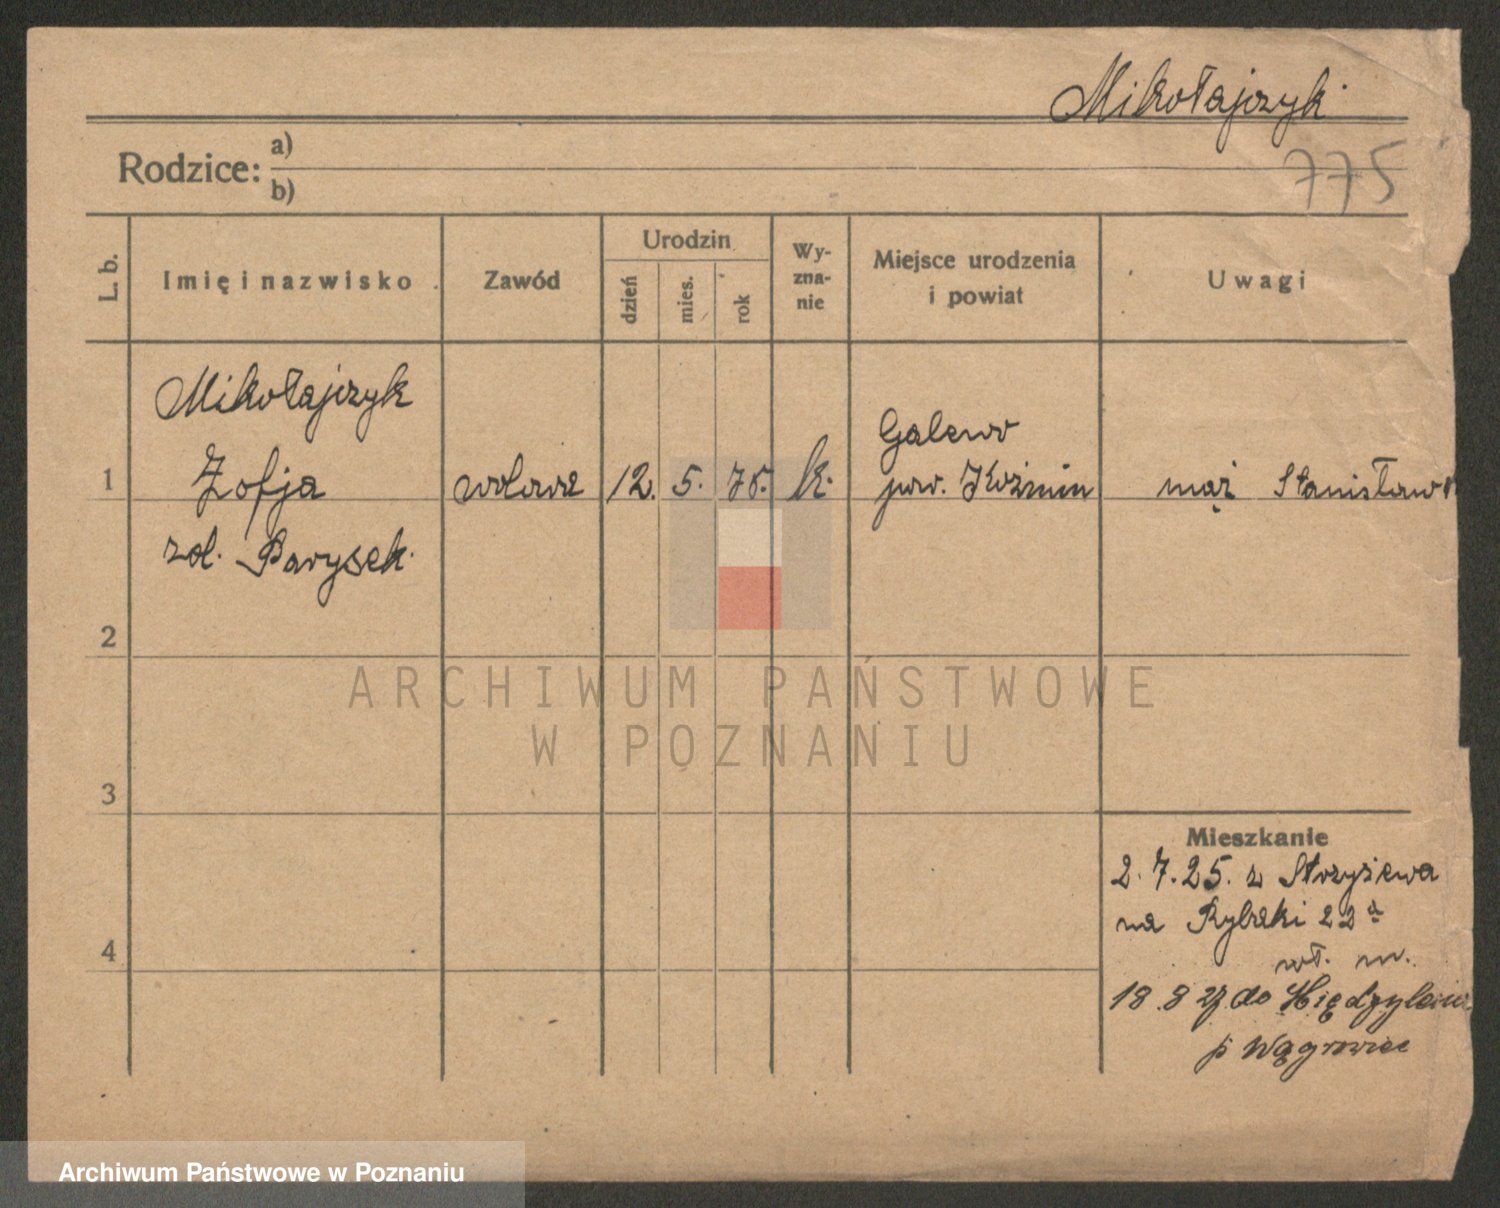 Mikołajczyk
775
Rodzice: a)
b)
L. b.
Imię i nazwisko
Zawód
Urodzin
dzień
mies.
rok
Wy-
zna-
nie
Miejsce urodzenia
i powiat
Uwagi
Mikołajczyk
Galewo
1 Zofja wdowa 12. 5. 75. k. pow. Koźmin mąż Stanisław
zd. Parysek.
2
ARCHIWUM PAŃSTWOWE
W POZNANIU
3
Mieszkanie
2.7.25. z Strzyżewa
na Rybaki 22a
4
wł. m.
18 8 27 do
p Wągrowiec
Archiwum Państwowe w Poznaniu